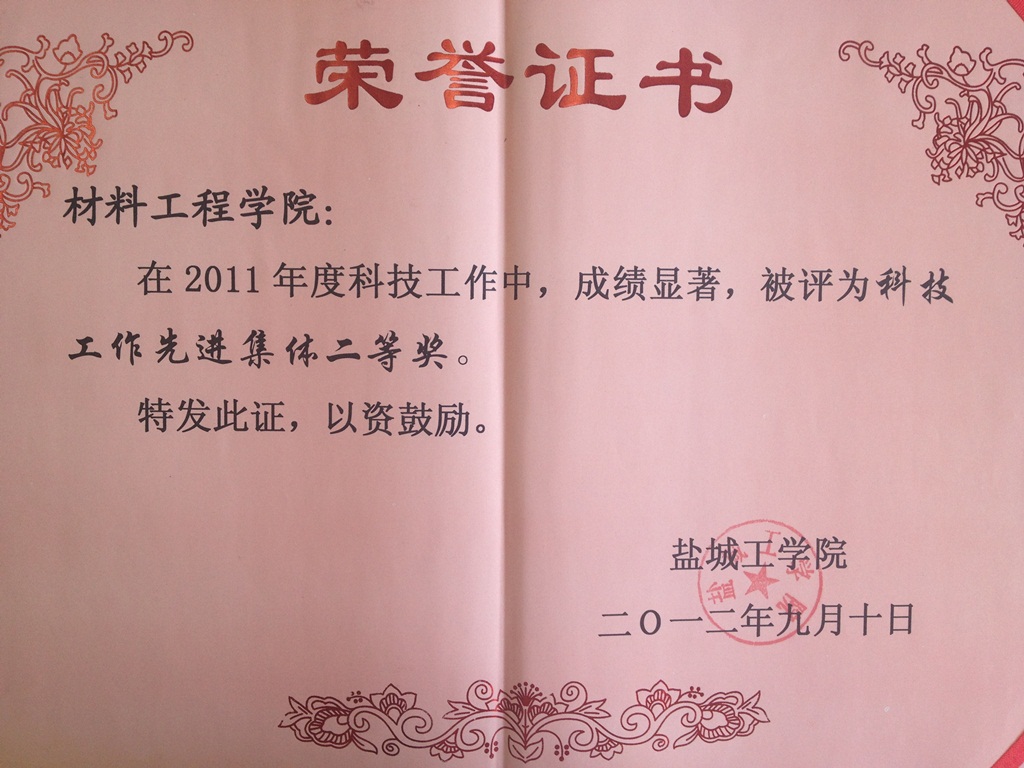 荣誉证书
材料工程学院：
在 2011 年度科技工作中，成绩显著，被评为科技
工作先进集体二等奖。
特发此证，以资鼓励。
盐城工学院
盐城工学院
二〇一二年九月十日